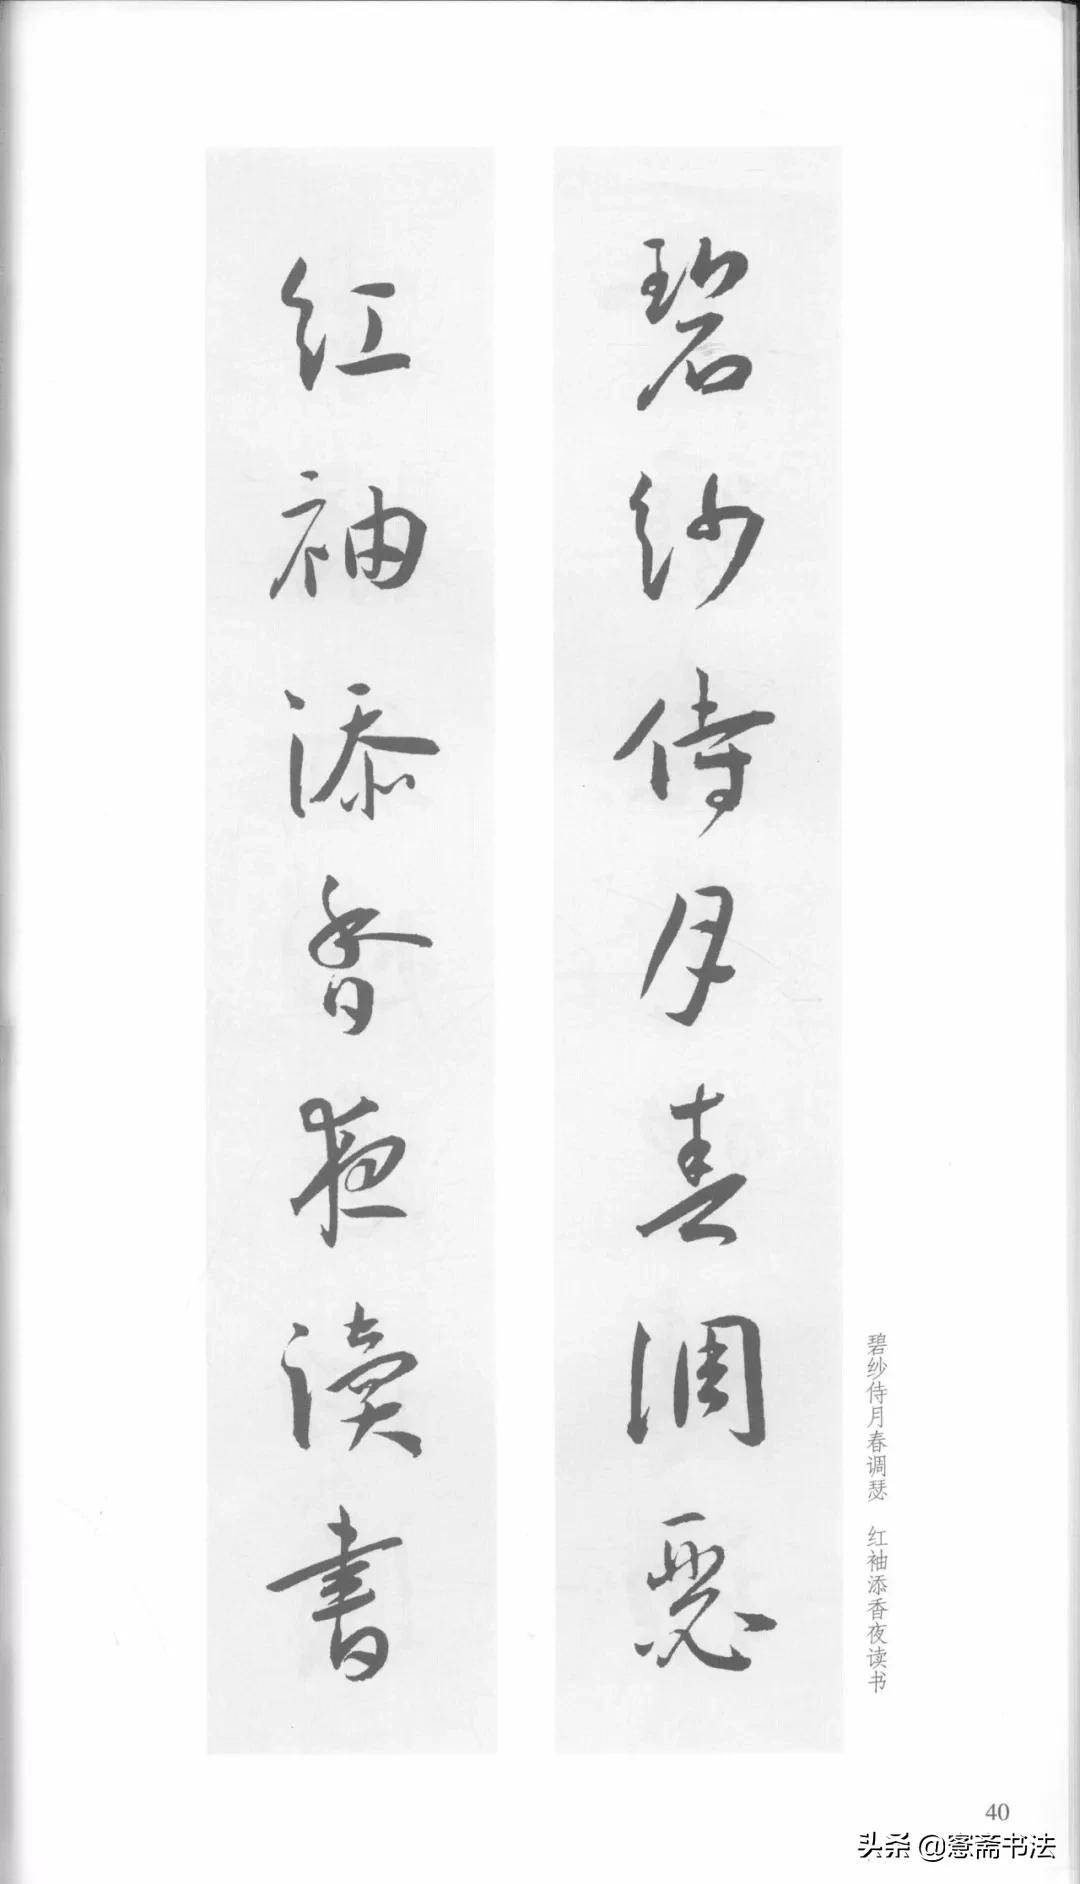 碧纱侍月春调瑟
红袖添香夜读书
碧纱侍月春调瑟 红袖添香夜读书
40
头条 @愙斋书法